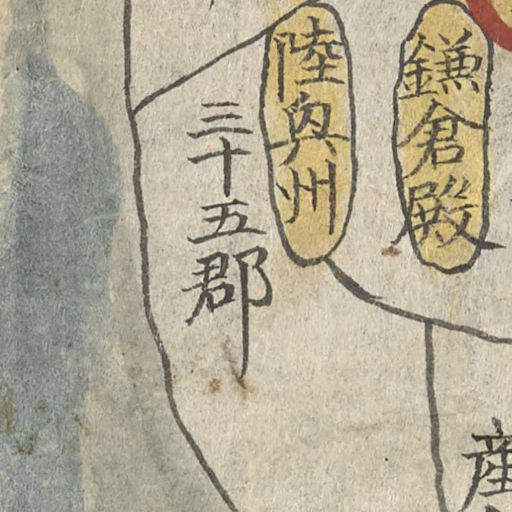 鎌倉殿
陸奥州
三十五郡
産